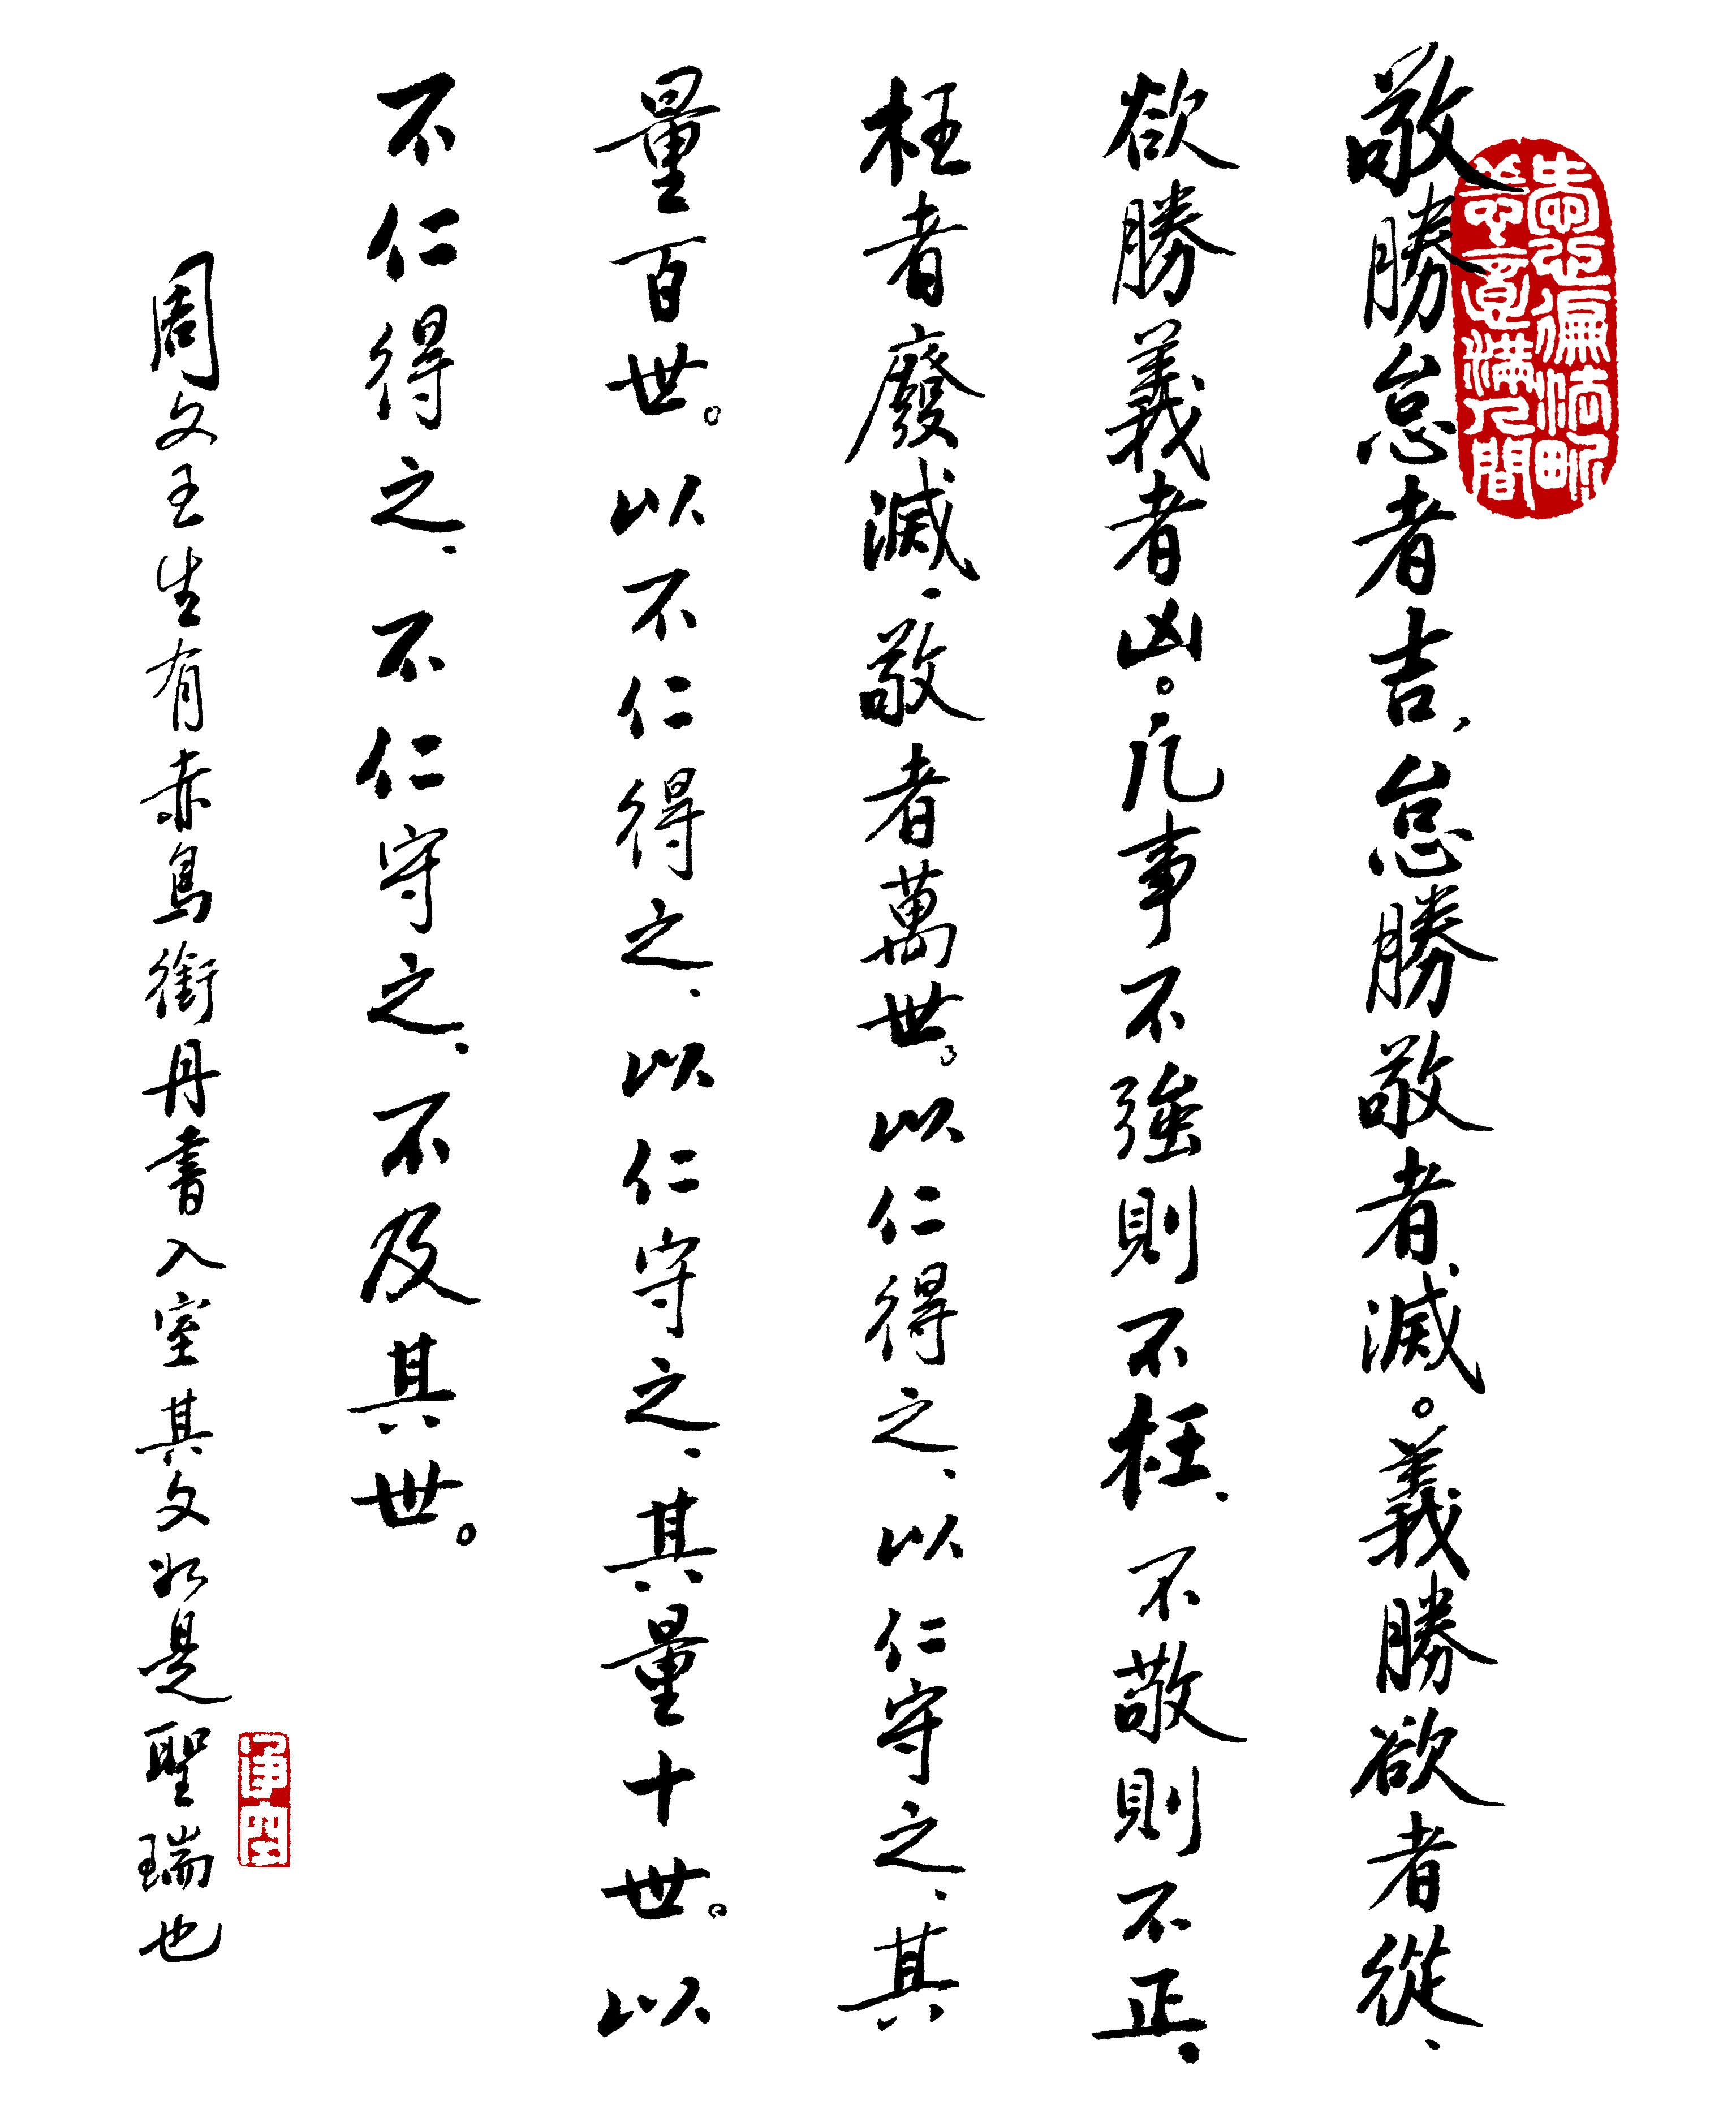 愛心徧法界
善意滿人間
敬勝怠者吉，怠勝敬者滅。義勝欲者從、
欲勝義者凶。凡事不強則不枉、不敬則不正、
枉者廢滅、敬者萬世。以仁得之、以仁守之、其
量百世。以不仁得之、以仁守之、其量十世。以
不仁得之、不仁守之、不及其世。
周文王生有赤鳥銜丹書入室其文如是聖瑞也
淨空